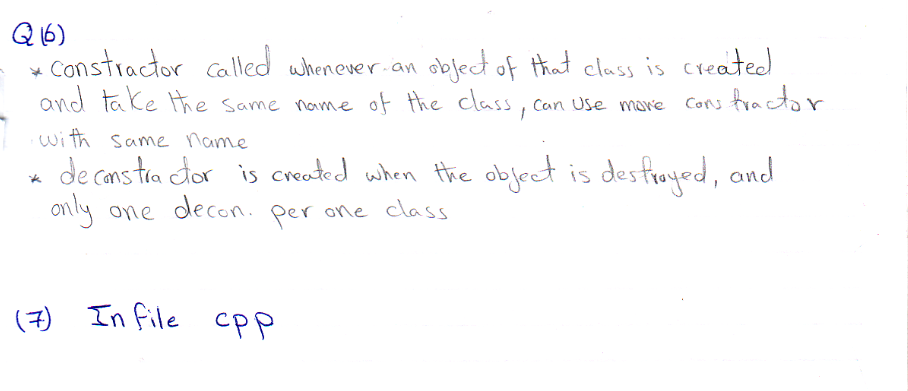 Q(6)
* constractor called whenever an object of that class is created
and take the same name of the class, can use more constractor
with same name
* deconstractor is created when the object is destroyed, and
only one decon. per one class
(7) In file cpp